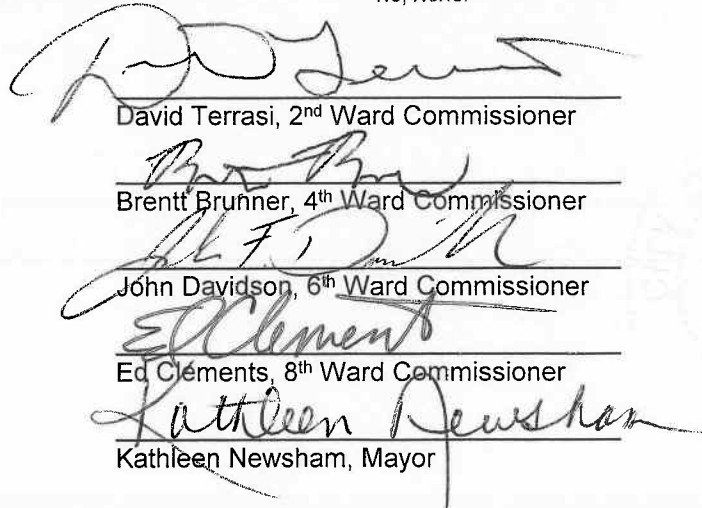 No, None.
David Terrasi, 2nd Ward Commissioner
Brentt Brunner, 4th Ward Commissioner
John F. D
John Davidson, 6th Ward Commissioner
Ed Clements
Ed Clements, 8th Ward Commissioner
Kathleen Newsham
Kathleen Newsham, Mayor